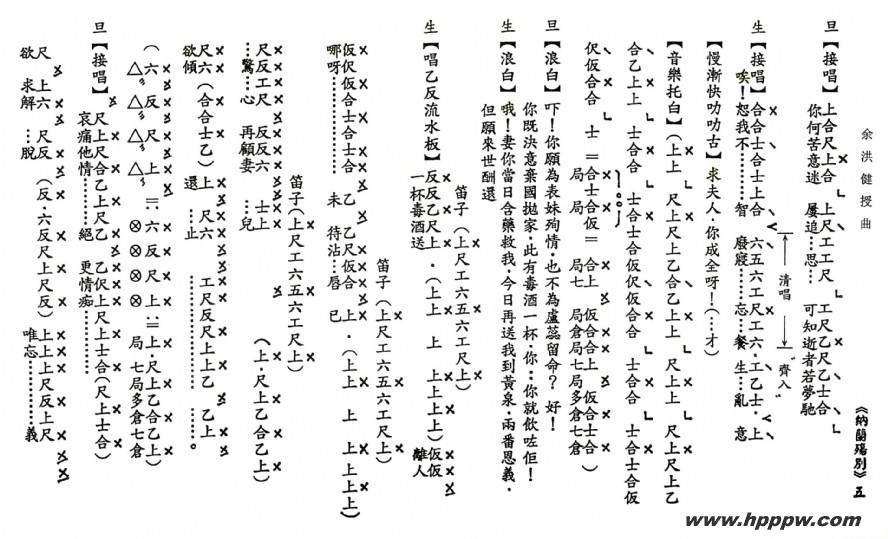 余洪健授曲
《納蘭殤別》五
旦【接唱】上合尺上合 上尺工工尺 工尺乙尺乙士合
你何苦意迷 屢追…思… 可知逝者若夢馳
清唱 "齊入"
生【接唱】合合士合士上合 六五六工尺工六．工乙士．上
唉！恕我不……智 廢寢……忘…餐 生…亂 意
【慢漸快叻叻古】求夫人．你成全呀！(…才)
【音樂托白】(上上 尺上尺上乙合乙上上 尺上上 尺上尺上乙
合乙上上 士合合 士合士合仮伬仮合合 士合合 士合士合仮
伬仮合合 士 =合士合仮= 合上 仮合合上 仮合士合 )
局 局 局七 局倉局七局多倉七倉
旦【浪白】吓！你願為表妹殉情．也不為盧蕊留命？好！
你既決意棄國拋家．此有毒酒一杯．你…你就飲咗佢！
生【浪白】哦！妻你當日含藥救我．今日再送我到黃泉．兩番恩義．
但願來世酬還
笛子(上尺工六五六工尺上)
生【唱乙反流水板】反反乙尺上．(上上 上 上上上上) 仮仮
一杯毒酒送 離人
笛子 (上尺工六五六工尺上)
仮伬仮合士合士合 乙 乙尺仮合 上．(上上 上 上上上上)
哪呀…………… 未 待沾…唇 已
笛子(上尺工六五六工尺上)
尺反工尺 反反六 士上 (上．尺上乙合乙上)
…驚…心 再顧妻 …兒
尺六(合合士乙)上 尺六 工尺反尺上上乙 乙上
欲傾 還…止 ……………。
(六 反 尺 上 =：六 反 尺 上：=上．尺上乙合乙上)
△〃 △〃 △〃 △〃 ⊗ ⊗ ⊗ ⊗ 局 七局多倉七倉
旦【接唱】尺上尺合乙上尺乙 乙伬上尺上士合(尺上士合)
哀痛他情………絕 更情痴……
尺 上六 尺反 (反．六反尺上尺反) 上上上尺反上尺
欲 求解 …脫 唯忘…………義
www.hpppw.com